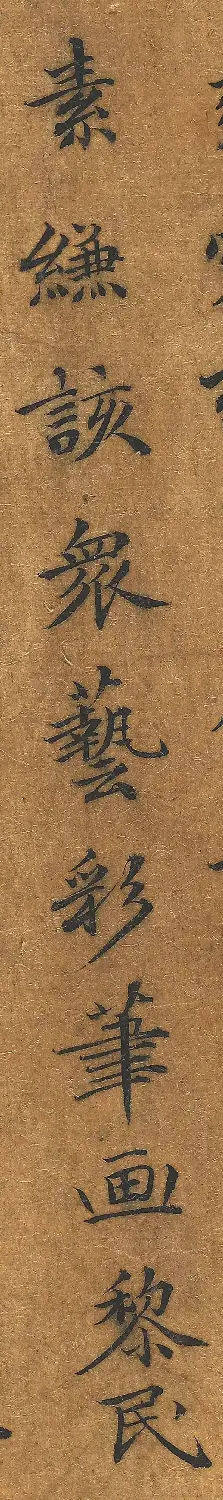 素縑該眾藝彩筆画黎民